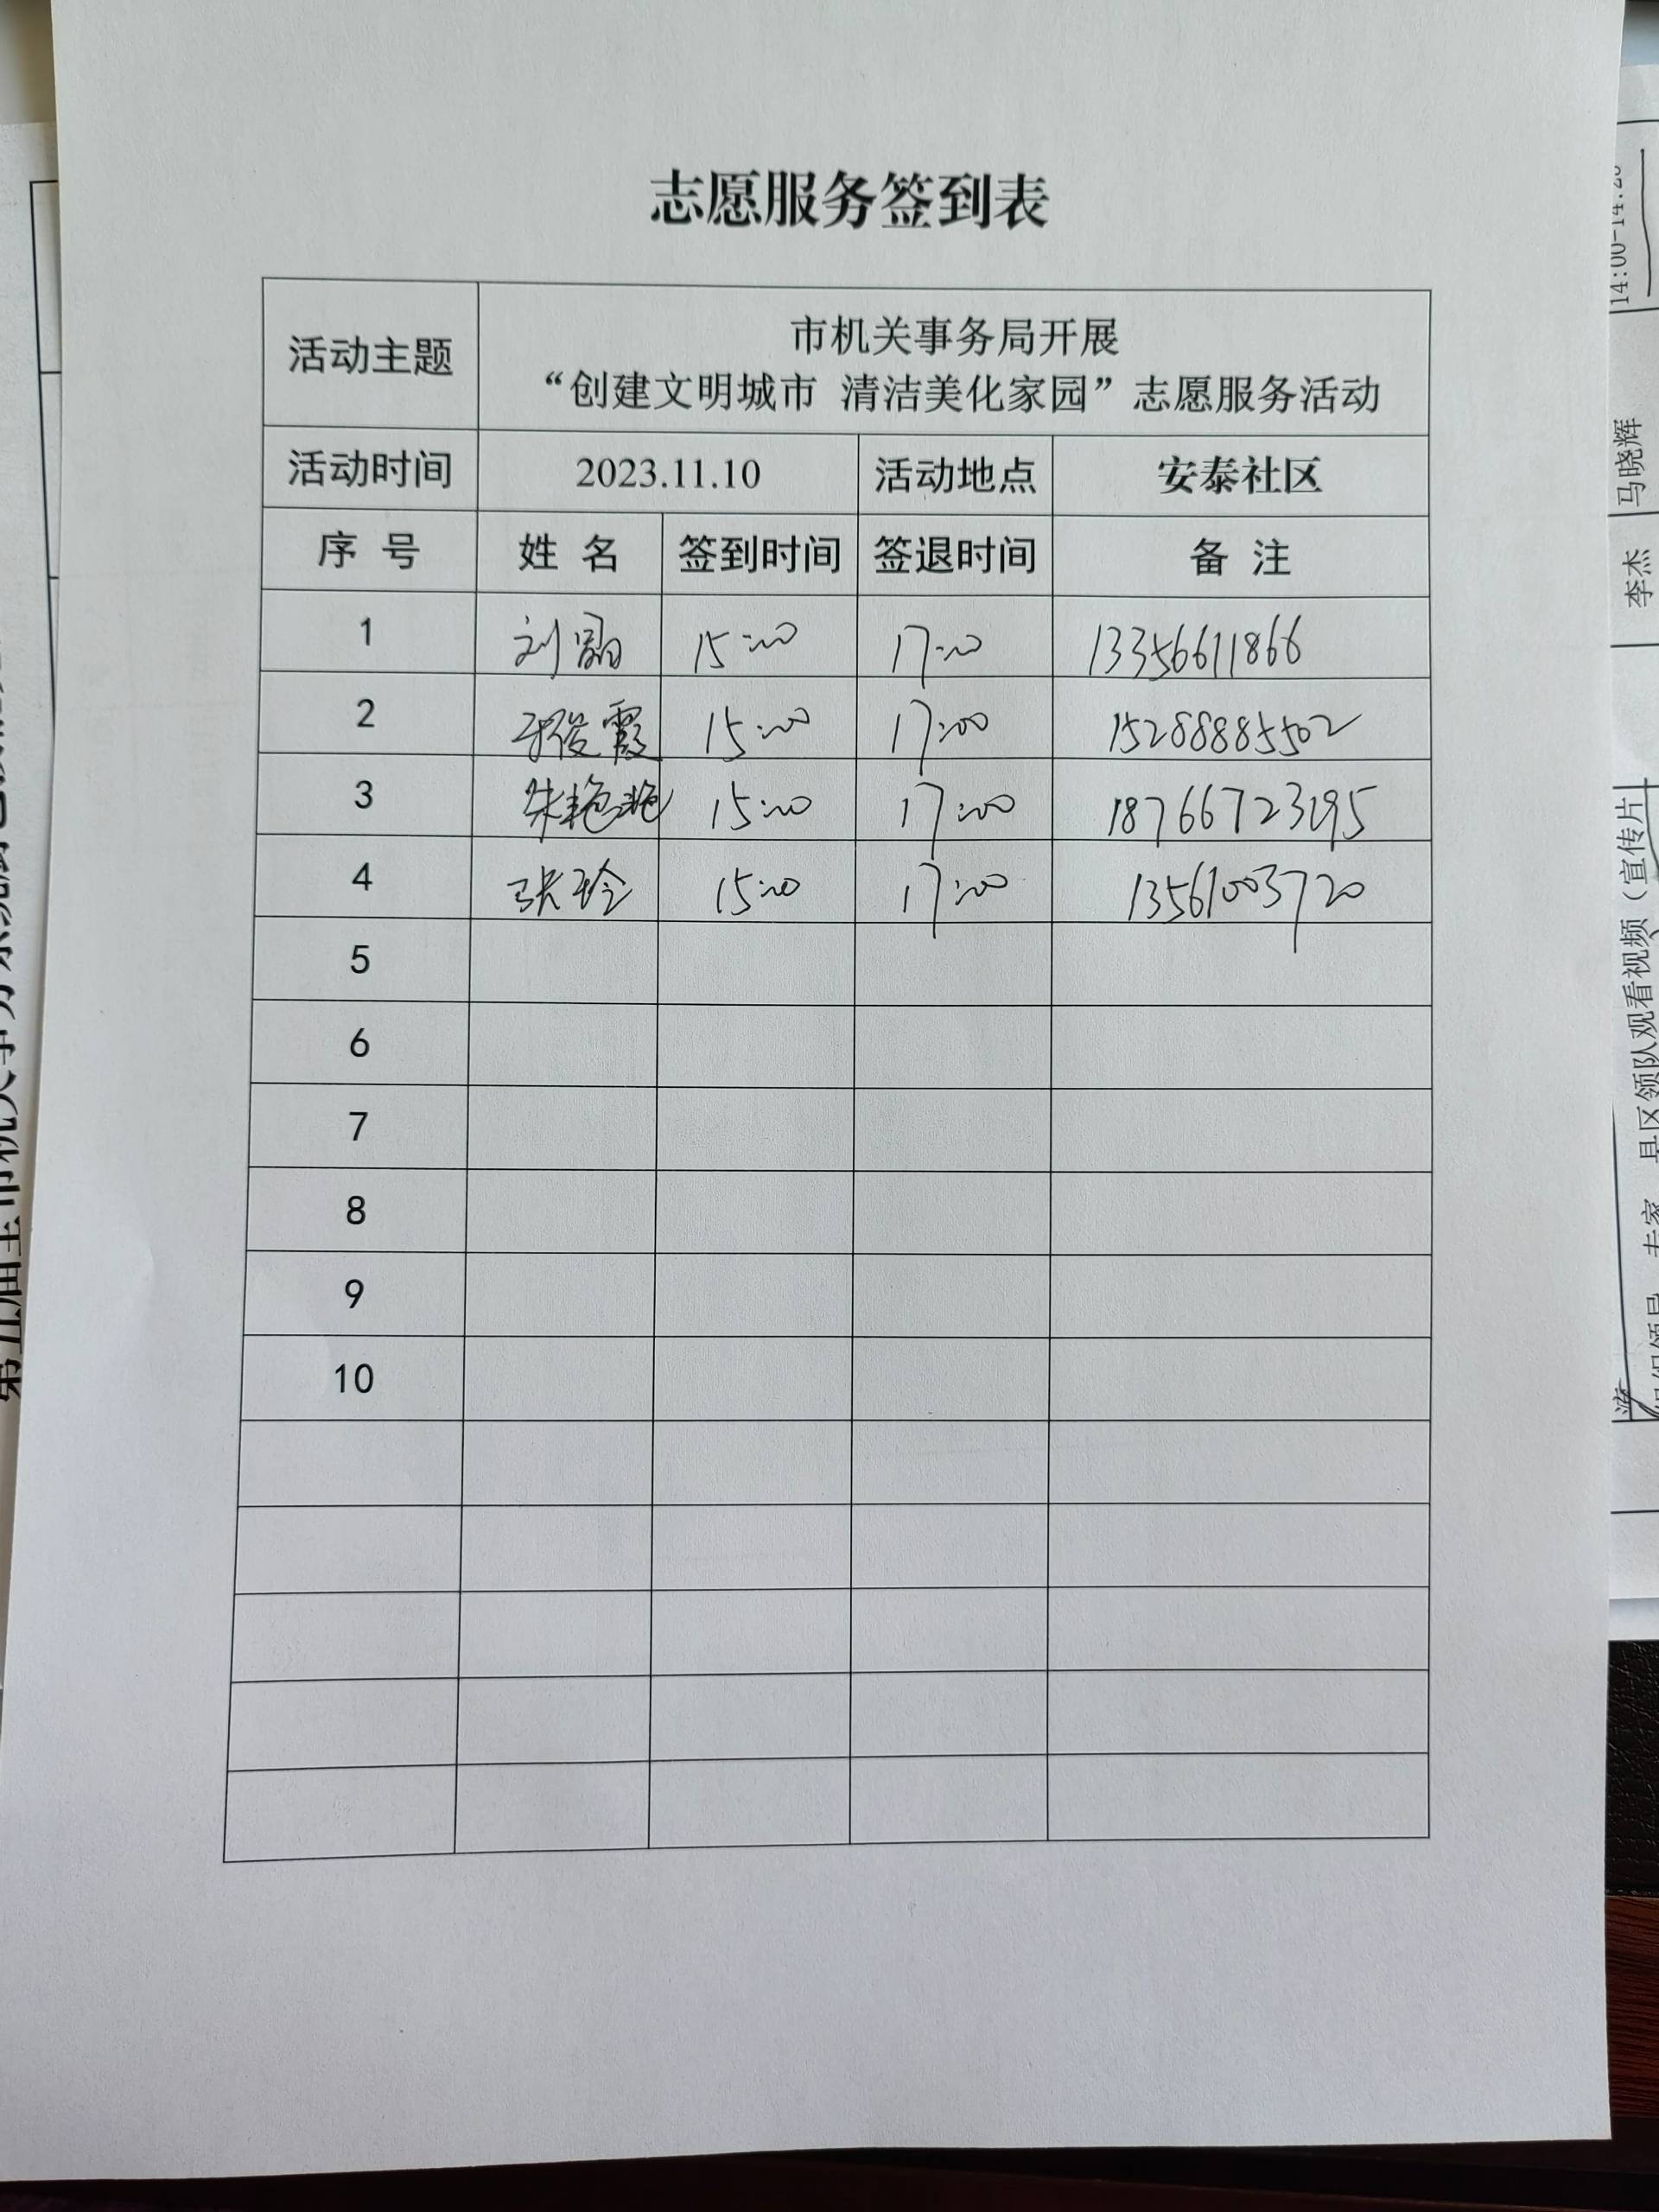 志愿服务签到表
活动主题
市机关事务局开展
“创建文明城市 清洁美化家园”志愿服务活动
活动时间 2023.11.10 活动地点 安泰社区
序 号 姓 名 签到时间 签退时间 备 注
1 刘 15:00 17:00 13356611866
2 俊霞 15:00 17:00 15288885502
3 朱艳艳 15:00 17:00 18766723195
4 张玲 15:00 17:00 13561003720
5
6
7
8
9
10
14:00-14:20
马晓辉
李杰
县区领队观看视频（宣传片
专家